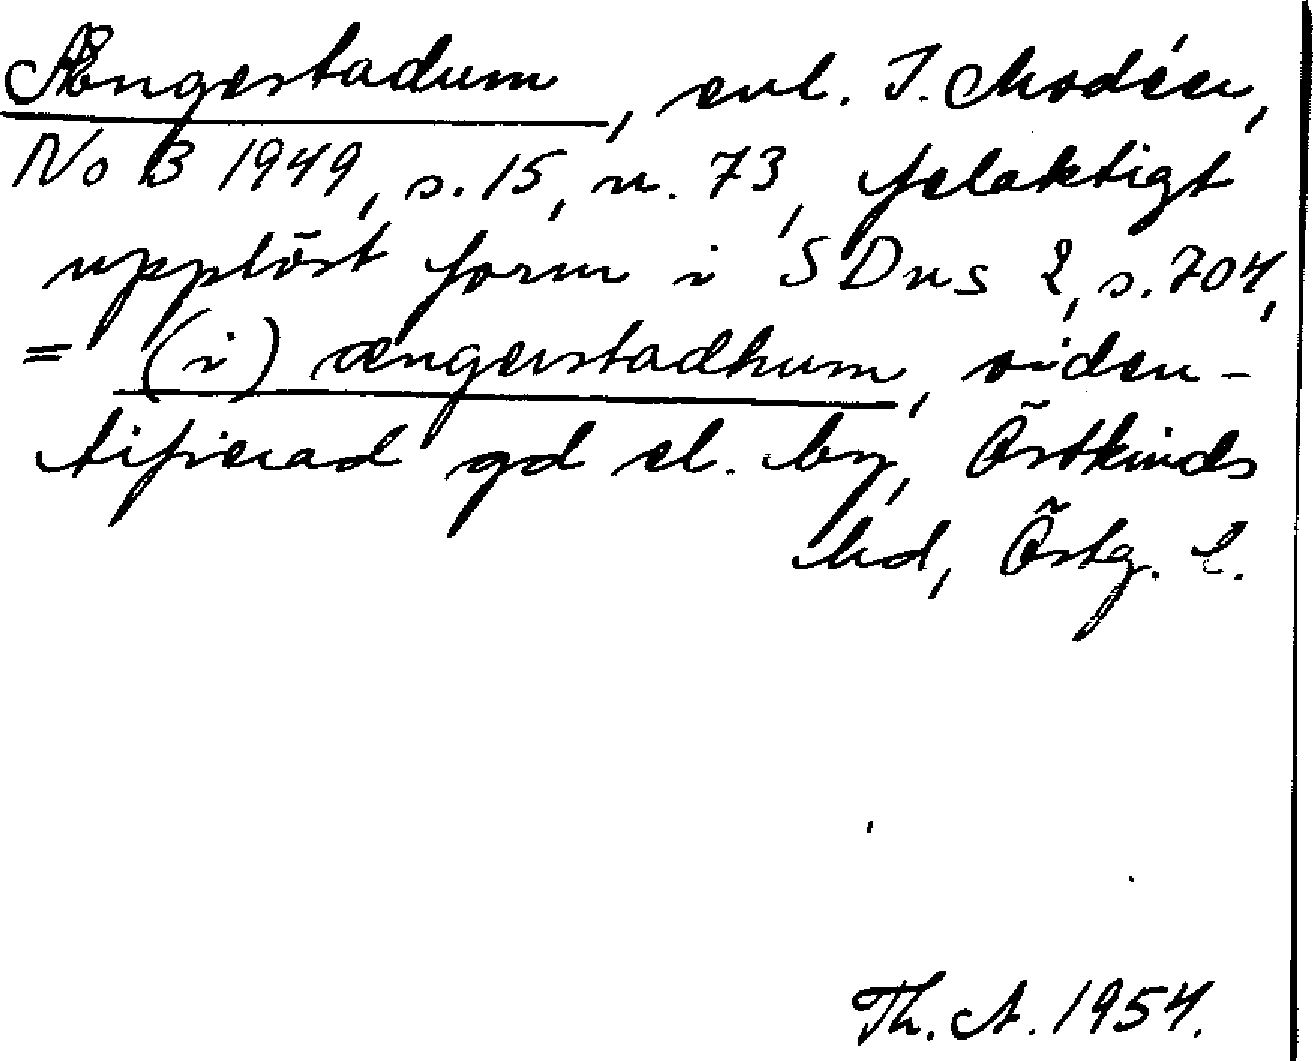 Ængestadum, enl. I. Modéer,
No B 1949, s. 15, n. 73, felaktigt
upplöst form i SDns 2, s. 704,
= (i) ængerstadhum, oiden-
tifierad gd el. by, Östkinds
hd, Östg. l.
Th. A. 1954.